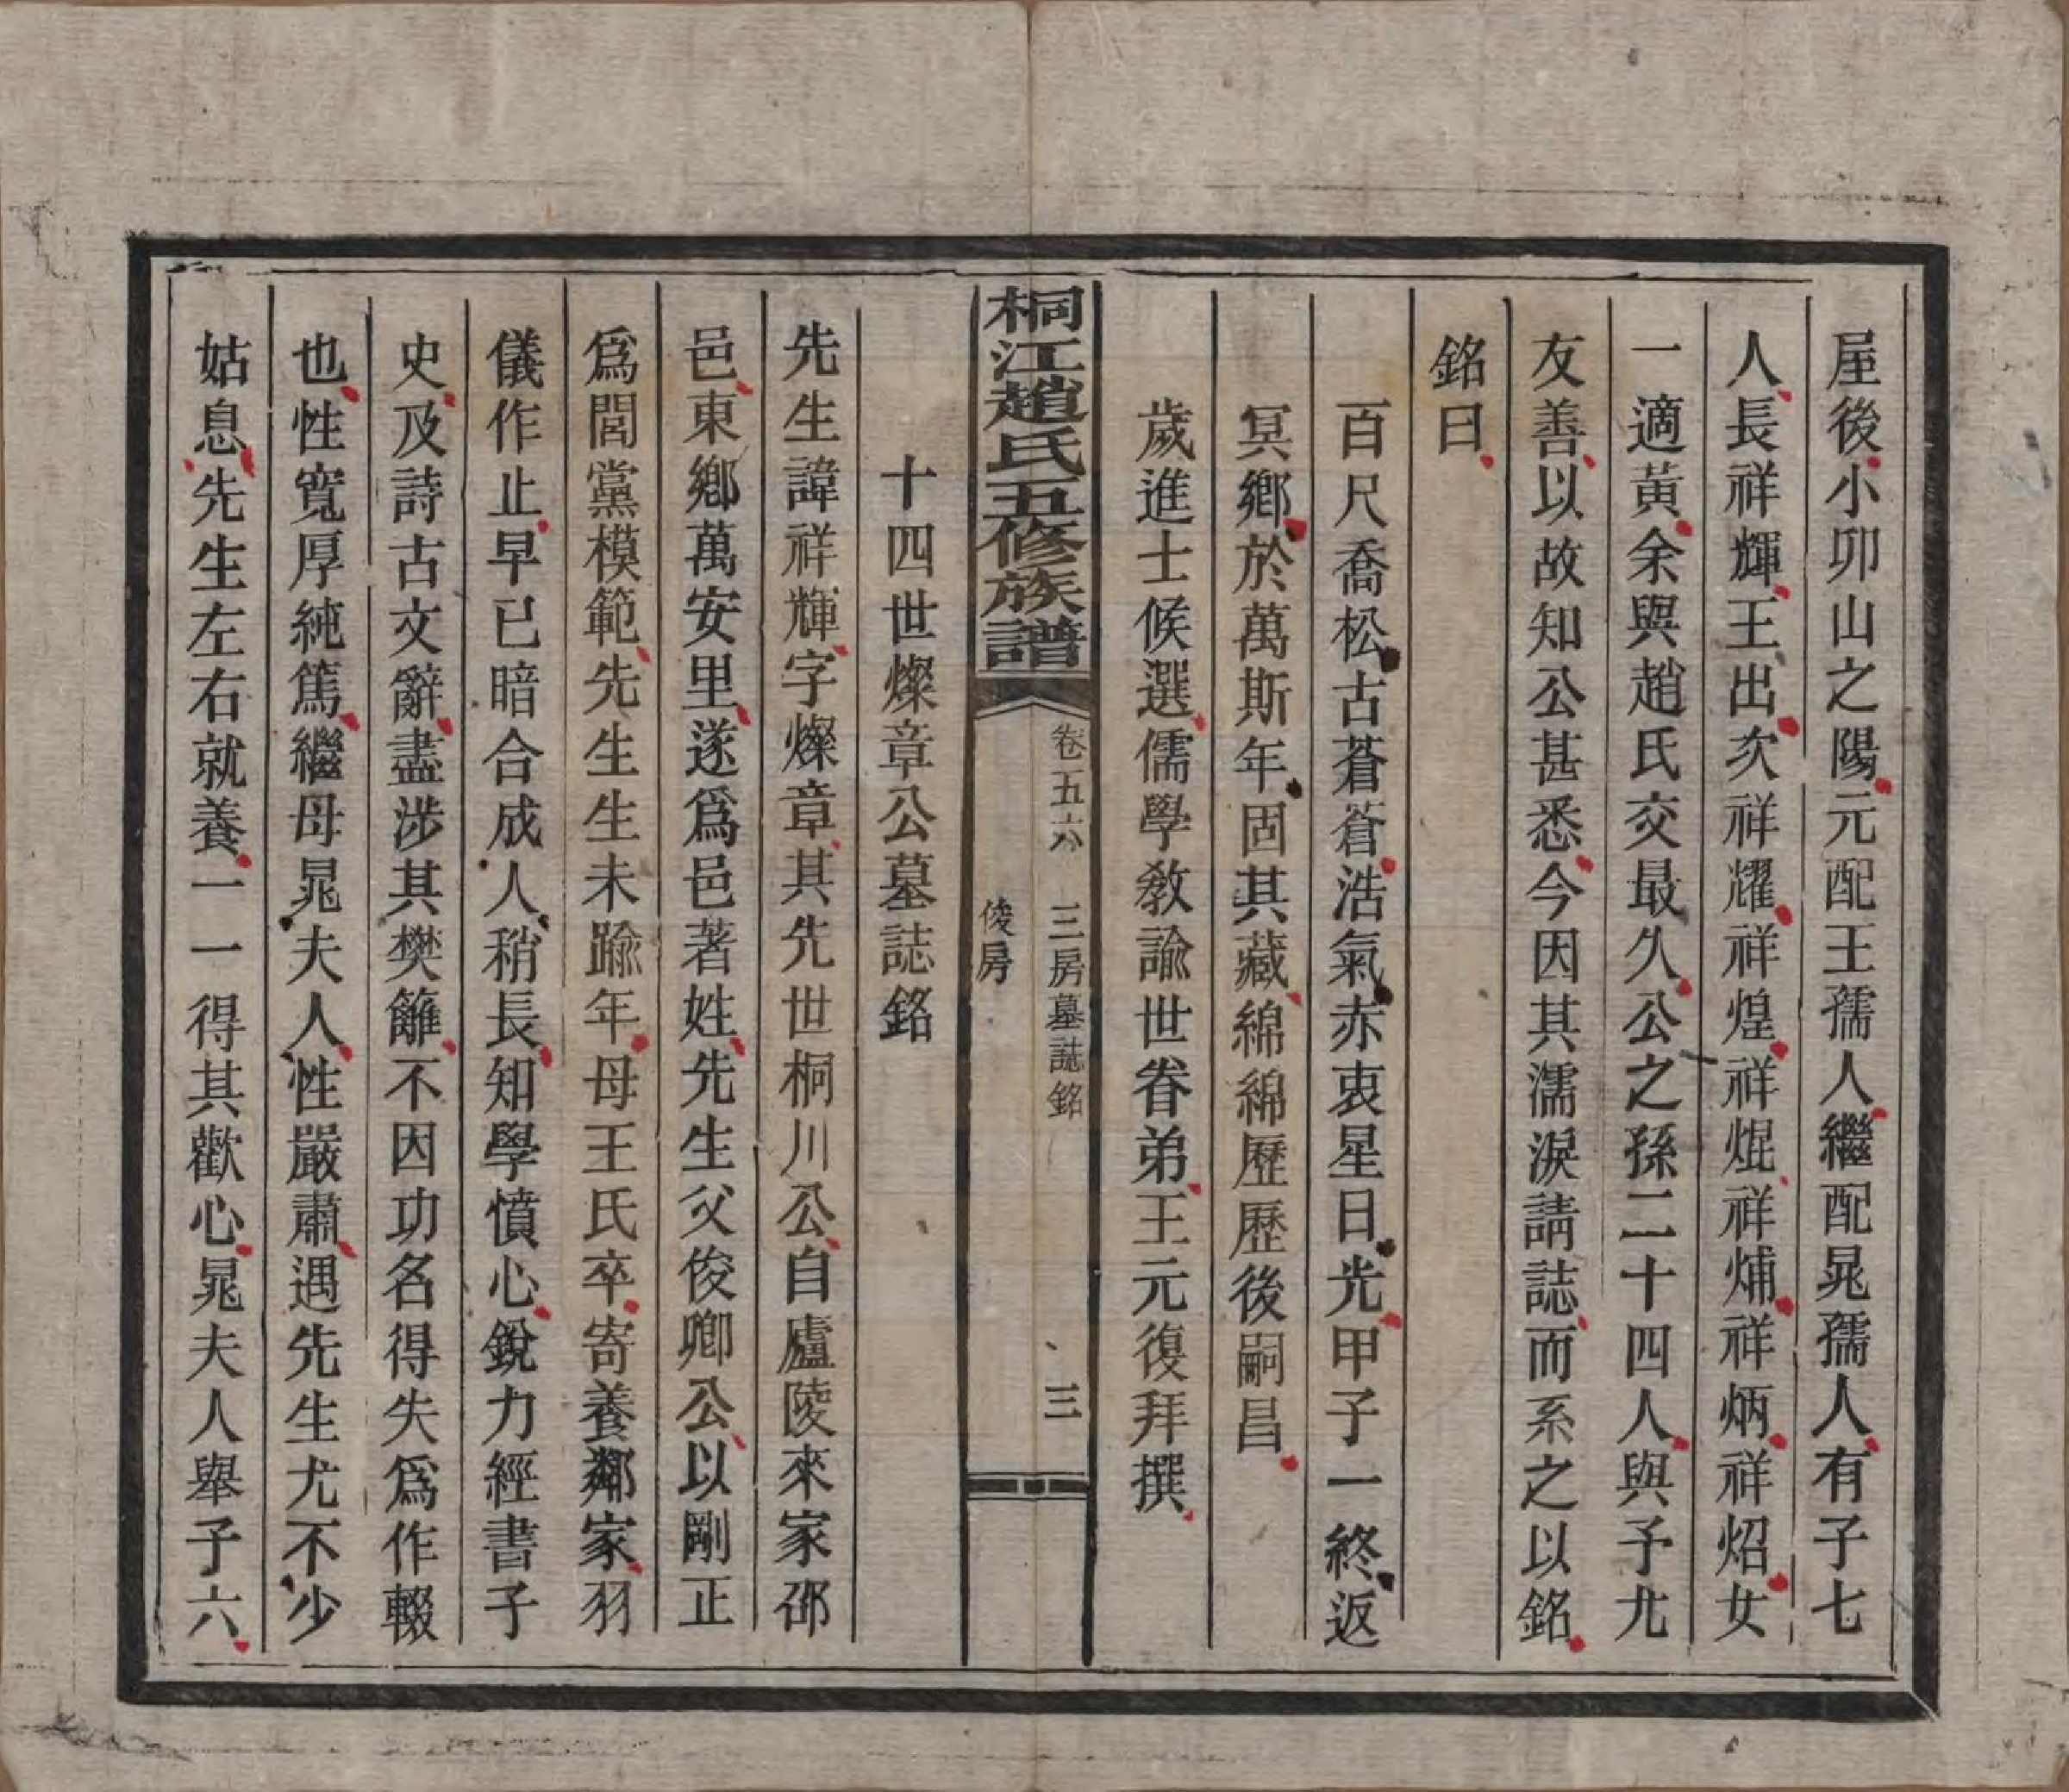 屋後小卯山之陽元配王孺人繼配晁孺人有子七
人長祥輝王出次祥耀祥煌祥焜祥烳祥炳祥炤女
一適黃余與趙氏交最久公之孫二十四人與予尤
友善以故知公甚悉今因其濡淚請誌而系之以銘
銘曰
百尺喬松古蒼蒼浩氣赤衷星日光甲子一終返
冥鄉於萬斯年固其藏綿綿歷歷後嗣昌
歲進士候選儒學教諭世眷弟王元復拜撰
桐江趙氏五修族譜
卷五六 三房墓誌銘 三
俊房
十四世燦章公墓誌銘
先生諱祥輝字燦章其先世桐川公自廬陵來家邵
邑東鄉萬安里遂爲邑著姓先生父俊卿公以剛正
爲閭黨模範先生生未踰年母王氏卒寄養鄰家羽
儀作止早已暗合成人稍長知學憤心銳力經書子
史及詩古文辭盡涉其樊籬不因功名得失爲作輟
也性寬厚純篤繼母晁夫人性嚴肅遇先生尤不少
姑息先生左右就養一一得其歡心晁夫人舉子六